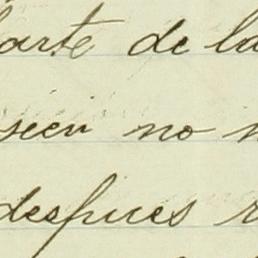 parte de la
seen no
despues